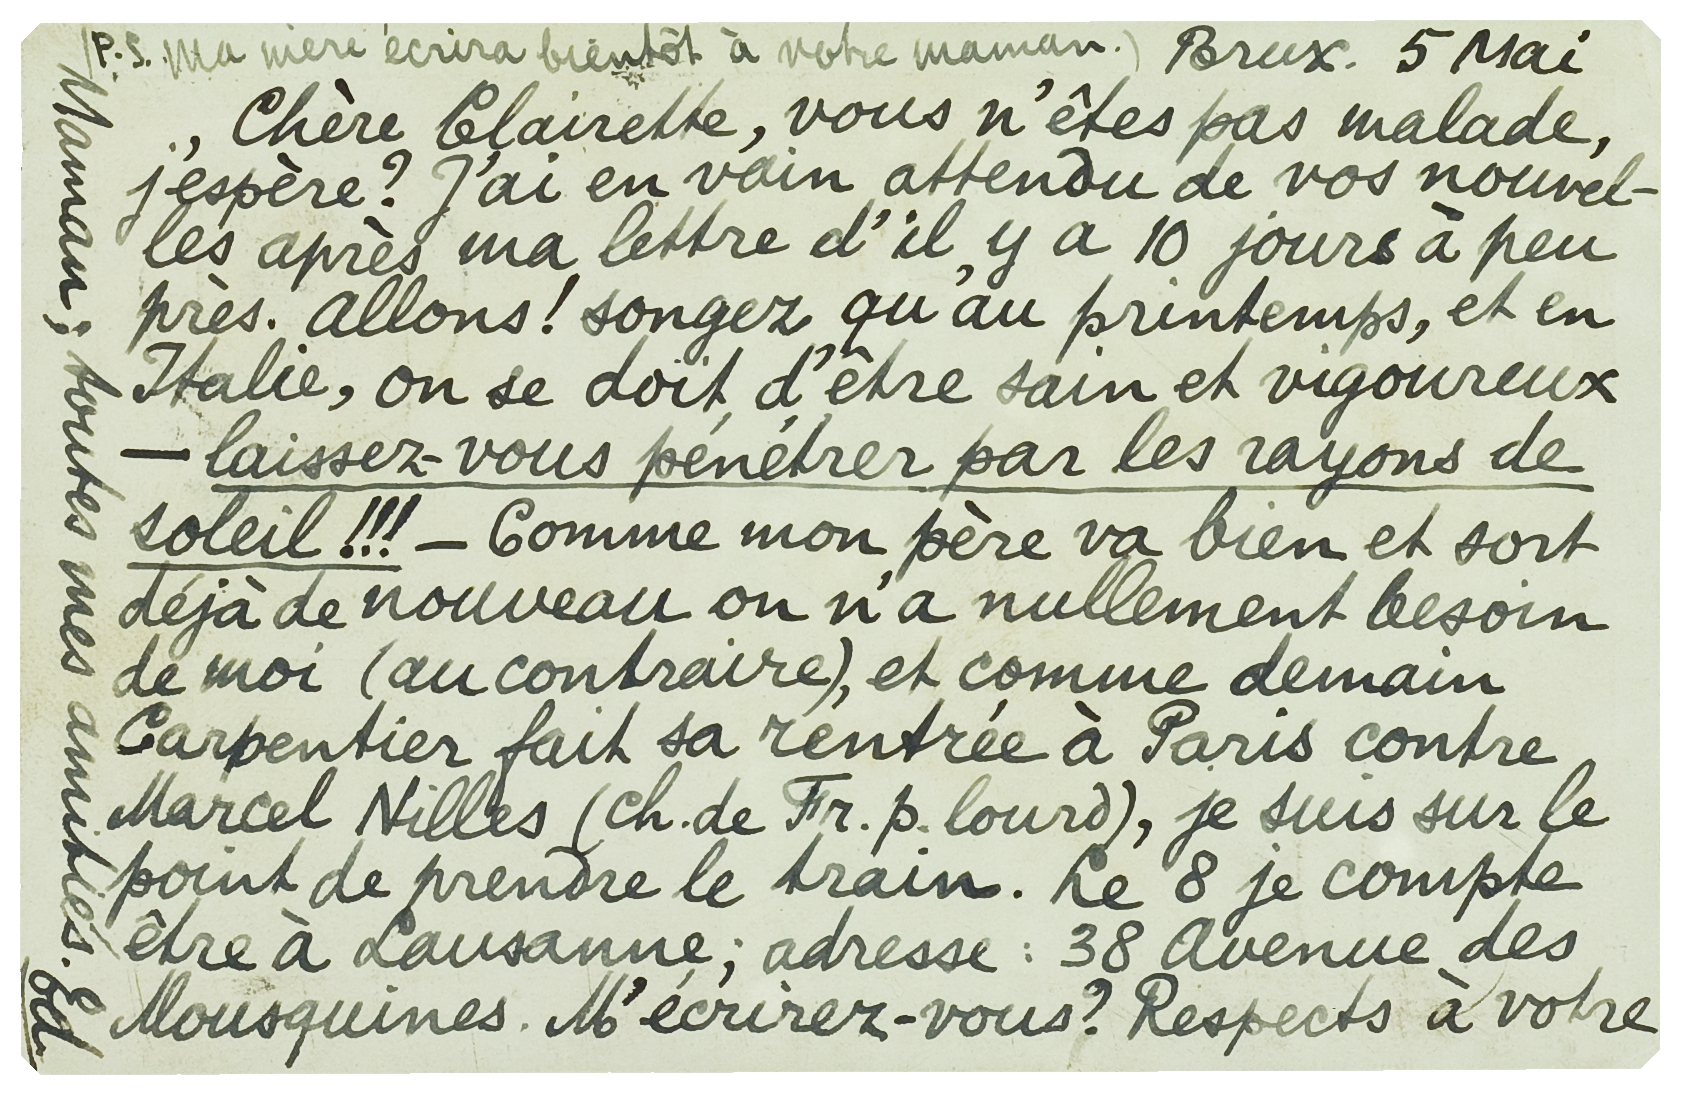 (P.S. Ma mère écrira bientôt à votre maman.) Brux. 5 Mai
Chère Clairette, vous n'êtes pas malade,
j'espère? J'ai en vain attendu de vos nouvel-
les après ma lettre d'il y a 10 jours à peu
près. Allons! songez qu'au printemps, et en
Italie, on se doit d'être sain et vigoureux
— laissez-vous pénétrer par les rayons de
soleil!!! — Comme mon père va bien et sort
déjà de nouveau on n'a nullement besoin
de moi (au contraire), et comme demain
Carpentier fait sa rentrée à Paris contre
Marcel Nilles (ch. de Fr. p. lourd), je suis sur le
point de prendre le train. Le 8 je compte
être à Lausanne; adresse: 38 Avenue des
Mousquines. M'écrirez-vous? Respects à votre
Maman; toutes mes amitiés. Ed.